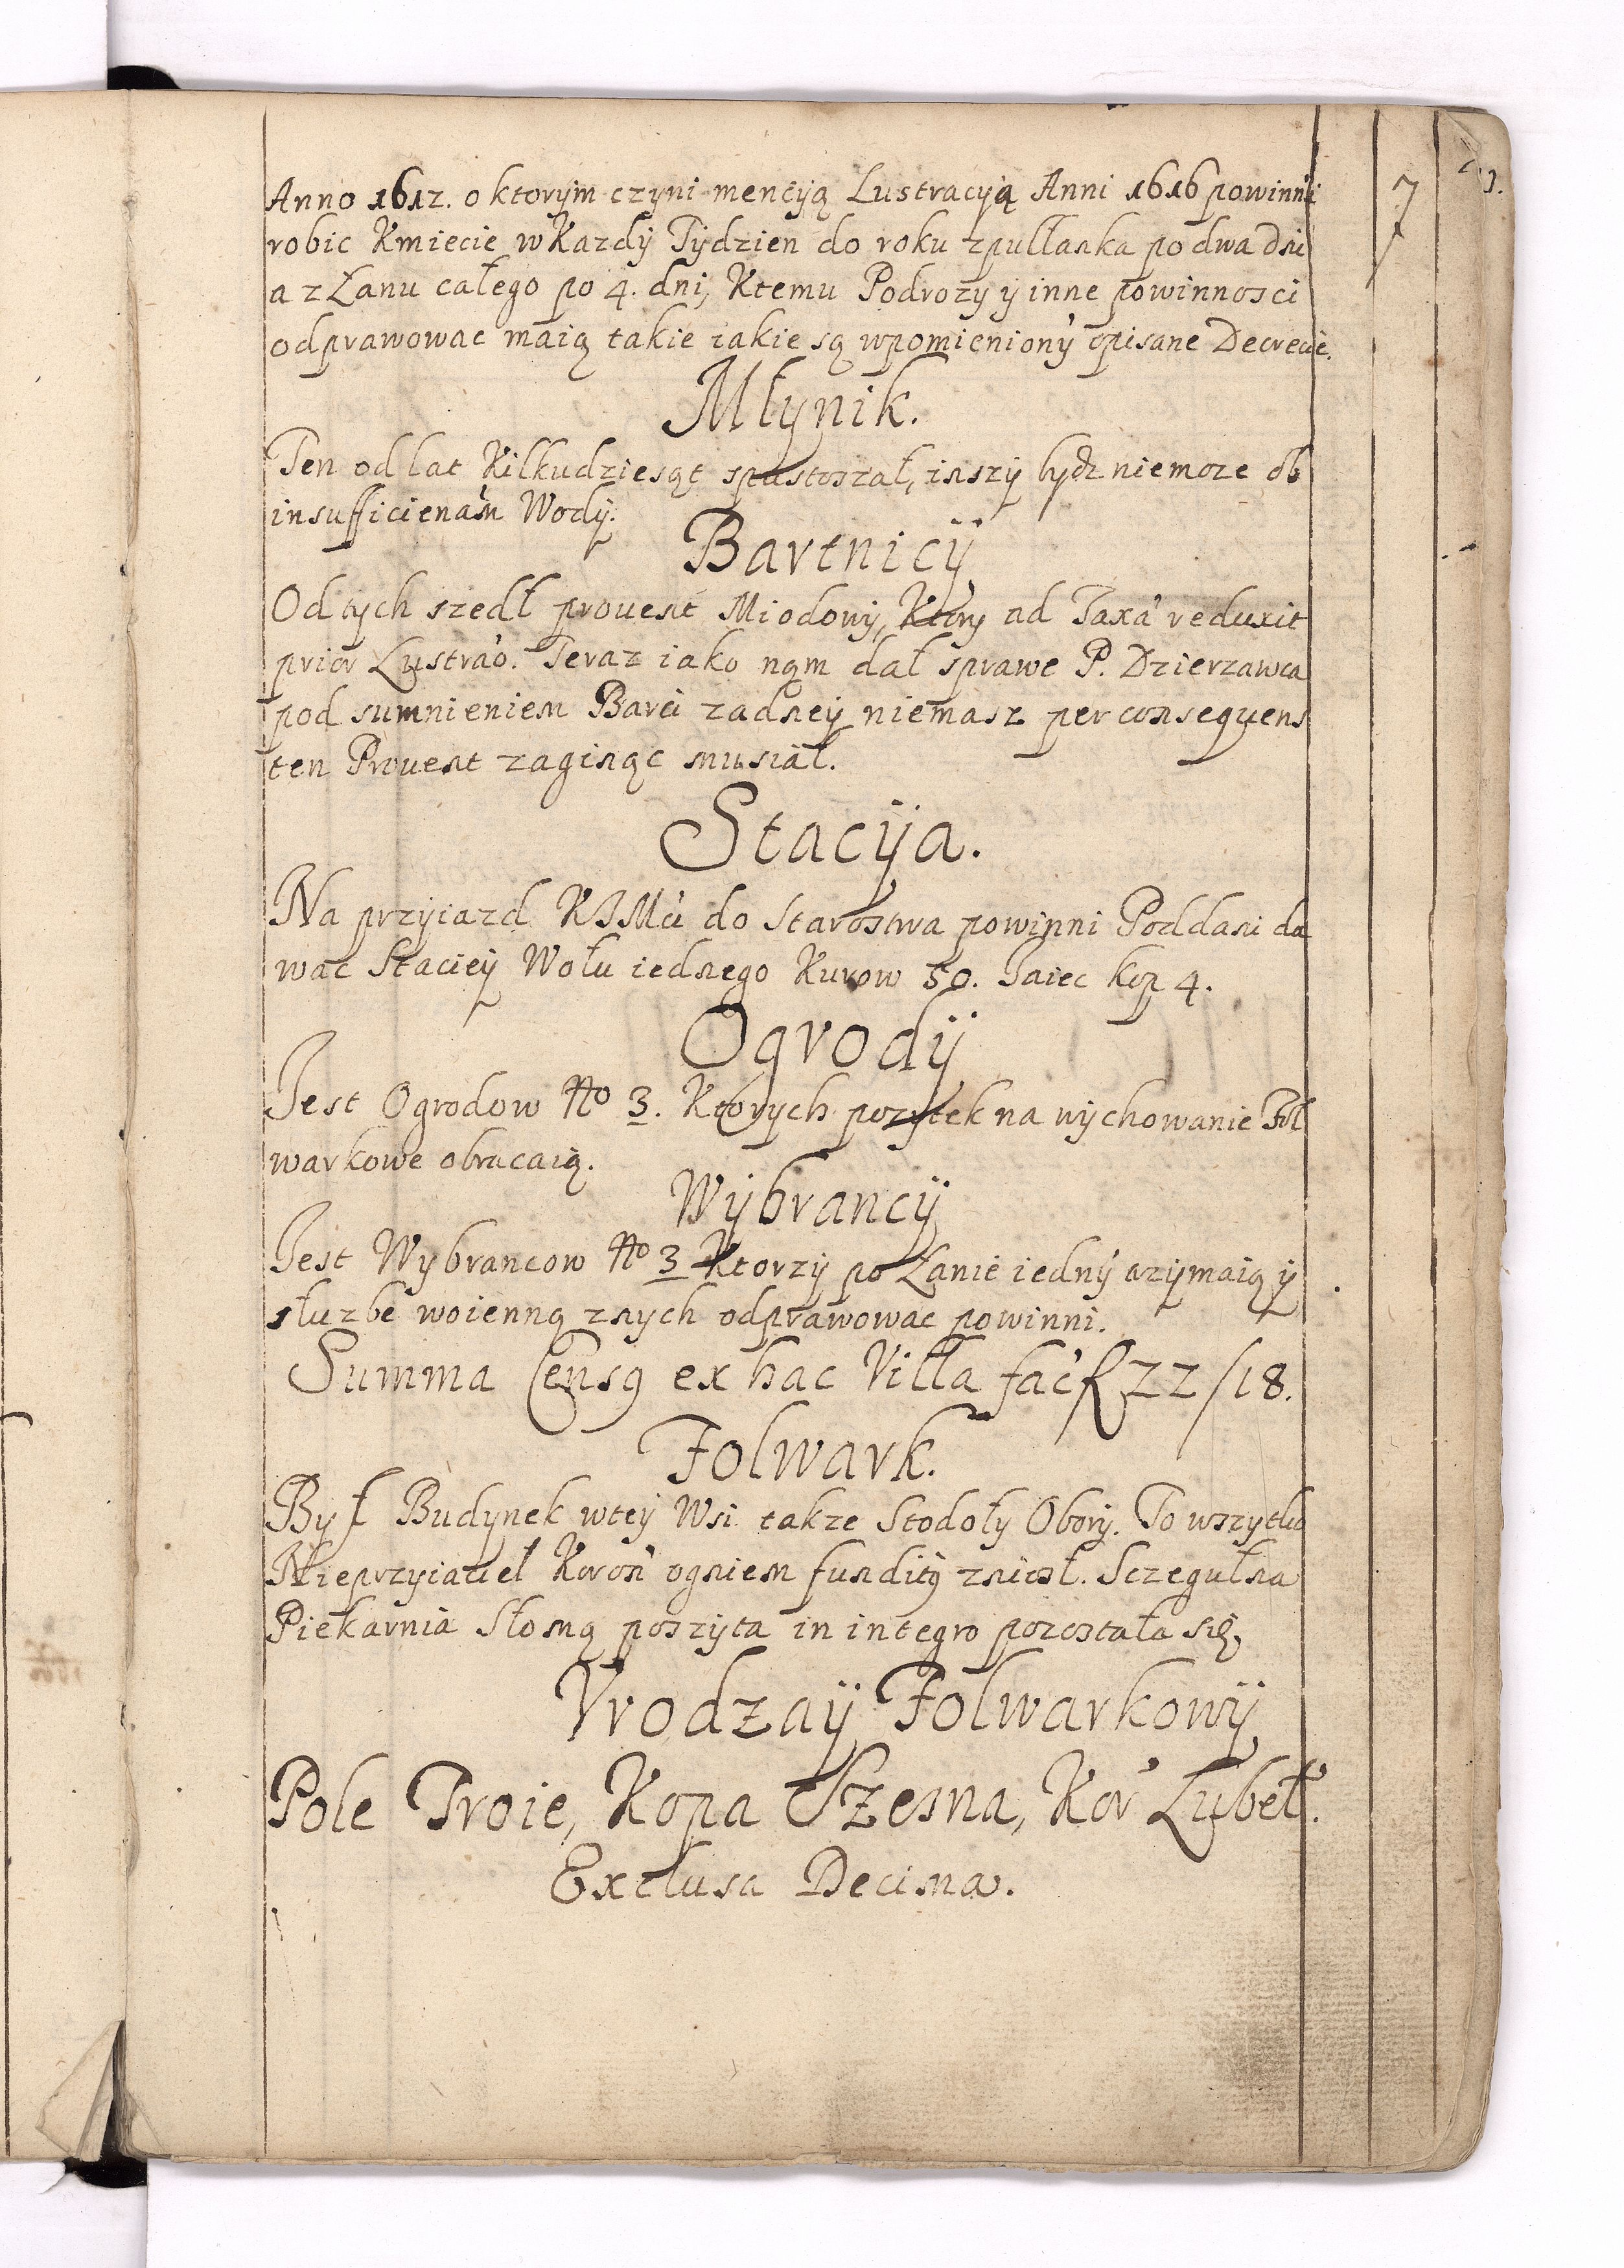 Anno 1612. o ktorym czyni mencyią Lustracyią Anni 1616 powinni
7
robic Kmiecie w Kazdÿ Tÿdzien do roku z pułłanka po dwa Dni
a z Łanu całego po 4. dni, Ktemu Podrozy ÿ inne powinnosci
odprawowac maią takie iakie są wpomienionÿ opisane Decrecie.
Młÿnik.
Ten od lat Kilkudziesąt spustoszał, inszÿ bydz niemoze ob
insufficienam Wodÿ.
Bartnicÿ
Od tych szedł prouent Miodowÿ, Ktory ad Taxa reduxit
prior Lustrao. Teraz iako nąm dał sprawe P. Dzierzawca
pod sumnieniem Barci zadneÿ niemasz per consequens
ten Prouent zaginąc musiał.
Stacÿa.
Na przÿiazd KJMci do Starostwa powinni Poddani da
wac Stacieÿ Wołu iednego Kurow 50. Jaiec kop 4.
Ogrodÿ
Jest Ogrodow No 3. Ktorych pozÿtek na wÿchowanie Fol
warkowe obracaią.
Wÿbrancÿ
Jest Wybrancow No 3 Ktorzÿ po Łanie iednÿ trzÿmaią ÿ
słuzbe woienną znych odprawowac powinni.
Summa Censq ex hac Villa fac f 22/18.
Folwark.
Był Budynek wteÿ Wsi takze Stodoły Oborÿ. To wszytko
Nieprzyiaciel Koron ogniem funditq zniosł. Sczegulna
Piekarnia Słomą poszÿta in integro pozostała się.
Vrodzaÿ Folwarkowÿ
Pole Troie, Kopa Szesna, Kor Lubel.
Exclusa Decima.